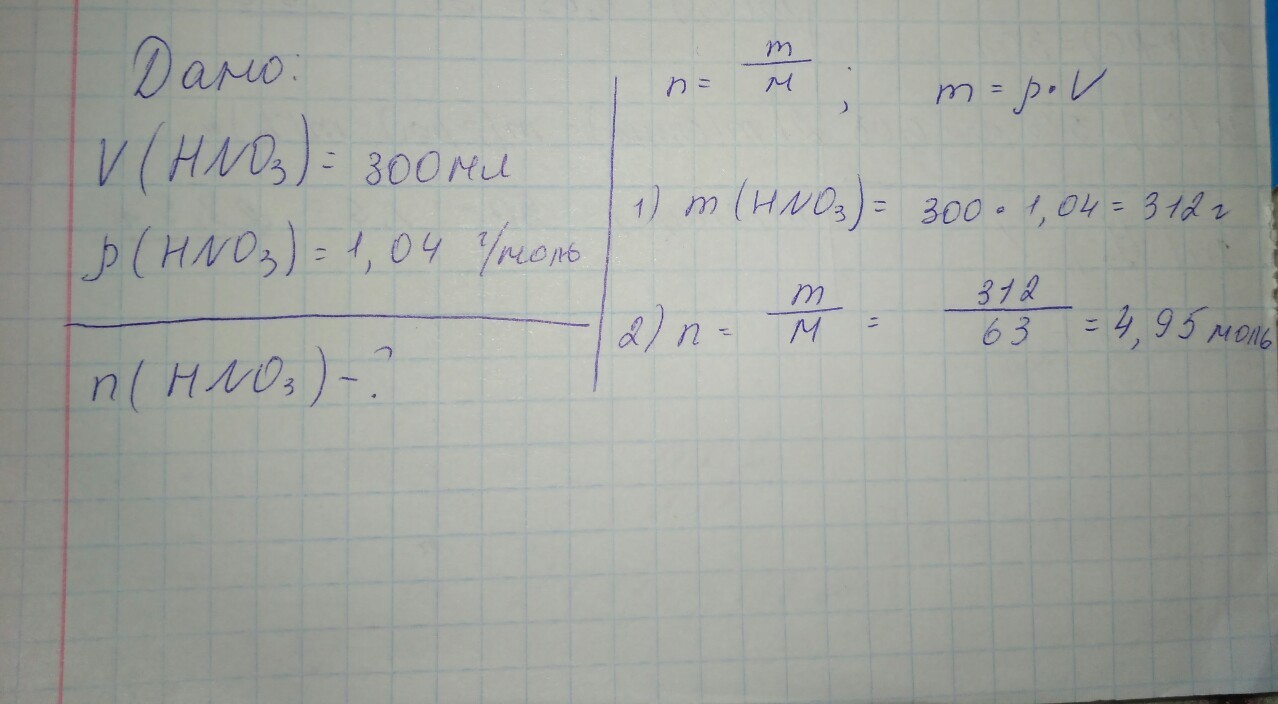 Дано:
V(HNO₃) = 300 мл
ρ(HNO₃) = 1,04 г/моль
n(HNO₃) - ?
n = m/M ; m = ρ · V
1) m(HNO₃) = 300 · 1,04 = 312 г
2) n = m/M = 312/63 = 4,95 моль